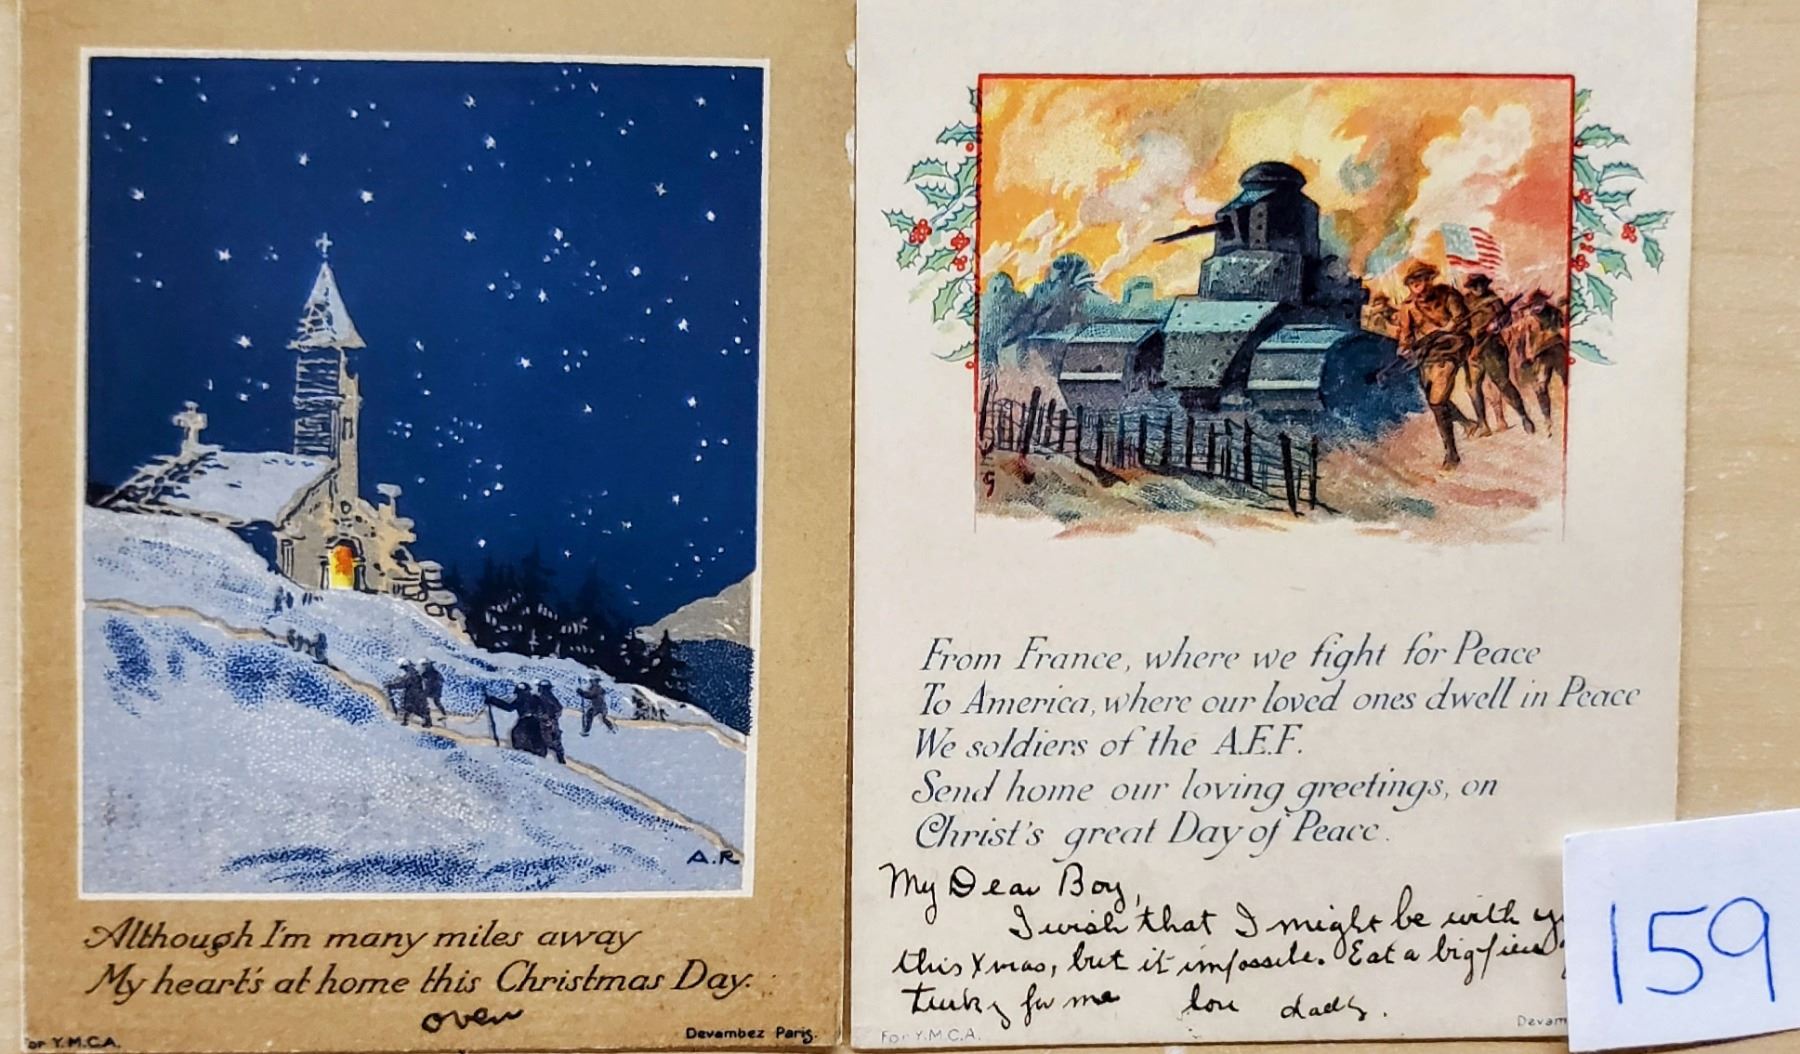 A.R
Although I'm many miles away
My heart's at home this Christmas Day.
over
or Y.M.C.A.
Devambez Paris.
G
From France, where we fight for Peace
To America, where our loved ones dwell in Peace
We soldiers of the A.E.F.
Send home our loving greetings, on
Christ's great Day of Peace.
My Dear Boy,
I wish that I might be with
this Xmas, but it impossible. Eat a big piece
Turky for me love daddy.
For Y.M.C.A.
Devam
159